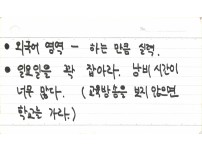 • 외국어 영역 - 하는 만큼 실력.
• 일요일을 꽉 잡아라. 낭비 시간이
너무 많다. (교육방송을 보지 않으면
학교를 가라.)